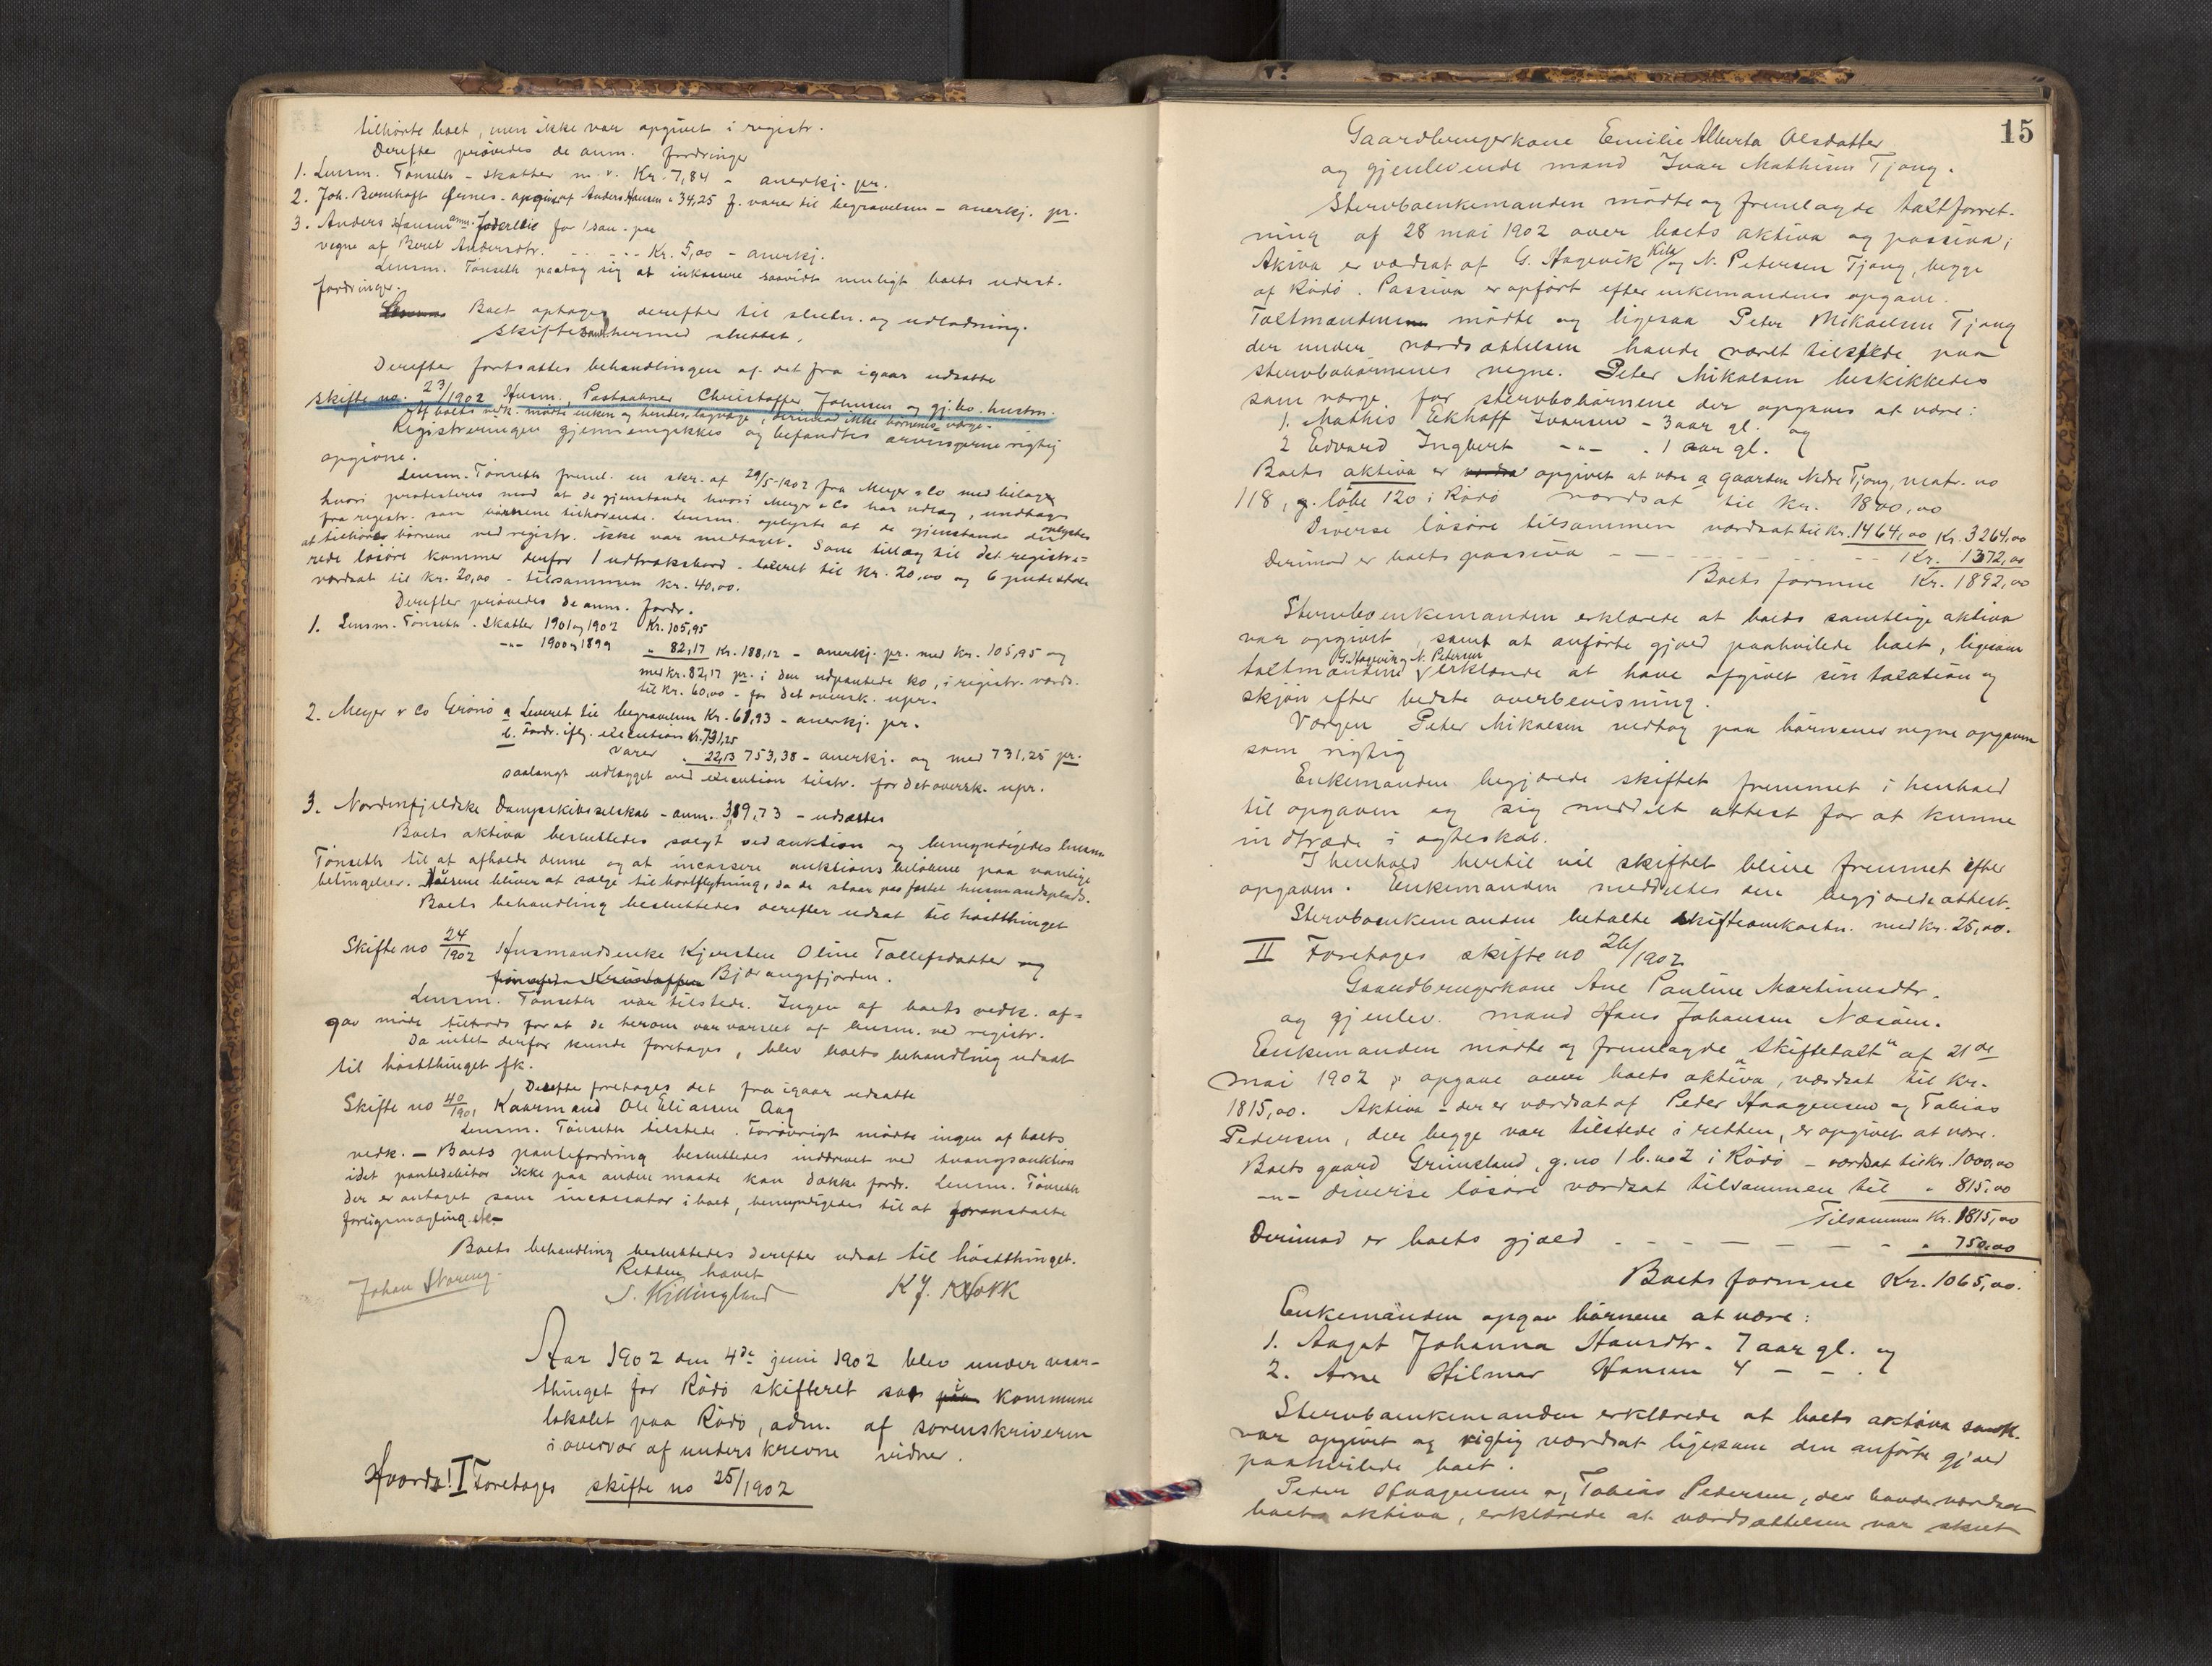 tilhørte boet, men ikke var opgivet i registr.
Derefter prøvedes de anm. fordringer
1. Lensm. Tønseth - skatter m. v. Kr. 7,84 - anerkj. pr.
2. Joh. Bernhoft Ørnes - opgivet af Anders Hansen - 34,25 f. varer til begravelsen - anerkj. pr.
3. Anders Hansen anm. for 1 sau - paa
vegne af Beret Andersdtr. - - - - Kr. 5,00 - anerkj.
Lensm. Tønseth paatog sig at inkassere saavidt muligt boets udest.
fordringer.
Boet optages derefter til slutn. og udlodning.
Skiftesaml. hermed sluttet.
Derefter fortsattes behandlingen af det fra igaar udsatte
skifte no. 23/1902 Husm., Postaabner Christoffer Johnsen og gj.lev. hustru.
Af boets vedk. mødte enken og hendes lagværge, derimod ikke børnenes værge.
Registreringen gjennemgikkes og befandtes arvingerne rigtig
opgivne.
Lensm. Tønseth freml. en skr. af 29/5-1902 fra Meyer & Co med bilage
hvori protesteres mod at de gjenstande hvori Meyer & Co har udlæg, undtages
fra registr. som børnene tilhørende. Lensm. oplyste at de gjenstande der oplystes
at tilhøre børnene ved registr. ikke var medtaget. Som tillæg til det registre-
rede løsøre kommer derfor 1 udtræksbord - taxeret til Kr. 20,00 og 6 pudestole
værdsat til Kr. 20,00 - tilsammen Kr. 40,00.
Derefter prøvedes de anm. fordr.
1. Lensm. Tønseth - Skatter 1901 og 1902 Kr. 105,95
-"- 1900 og 1899 " 82,17 Kr. 188,12 - anerkj. pr. med Kr. 105,95 og
med Kr. 82,17 pr. i den udpantede ko, i registr. værds.
til Kr. 60,00 - for det oversk. upr.
2. Meyer & Co Grønø a Leveret til begravelsen Kr. 61,93 - anerkj. pr.
b. Fordr. iflg. execution Kr. 731,25
varer " 22,13 753,38 - anerkj. og med 731,25 pr.
saalangt udlægget ved execution tilstr. for det oversk. upr.
3. Nordenfjeldske Dampskibsselskab - anm. 319,73 - udsættes
Boets aktiva besluttedes solgt ved auktion og bemyndigedes lensm.
Tønseth til at afholde denne og at incassere auktions beløbene paa vanlige
betingelser. Husene bliver at sælge til bortflytning, da de staar paa fæstet husmandsplads.
Boets behandling besluttedes derefter udsat til høstthinget
Skifte no 24/1902 Husmandsenke Kjersten Oline Tollefsdatter og
Bjærangsfjorden.
Lensm. Tønseth var tilstede. Ingen af boets vedk. af-
gav møde tiltrods for at de herom var varslet af lensm. ved registr.
Da intet derfor kunde foretages, blev boets behandling udsat
til høstthinget fk.
Derefter foretages det fra igaar udsatte
Skifte no 40/1901 Kaarmand Ole Eliassen Aag
Lensm. Tønseth tilstede. Forøvrigt mødte ingen af boets
vedk. - Boets pantefordring besluttedes inddrevet ved tvangsauktion
idet pantedebitor ikke paa anden maade kan dække fordr. Lensm. Tønseth
der er antaget som incassator i boet, bemyndigedes til at foranstalte
forligsmægling etc.
Boets behandling besluttedes derefter udsat til høstthinget.
Retten hævet
Johan Storeng S. Killingland K J. Krokk
Aar 1902 den 4de juni 1902 blev under vaar-
thinget for Rødø skifteret sat i kommune
lokalet paa Rødø, adm. af sorenskriveren
i overvær af underskrevne vidner.
Hvorda! I Foretages skifte no 25/1902
15
Gaardbrugerkone Emilie Alberta Olsdatter
og gjenlevende mand Ivar Mathisen Tjong.
Stervboenkemanden mødte og fremlagde taxtforret-
ning af 28 mai 1902 over boets aktiva og passiva;
Akiva er værdsat af G. Hagevik Kila og N. Petersen Tjong, begge
af Rødø. Passiva er opført efter enkemandens opgave.
Taxtmændene mødte og ligesaa Peter Mikaelsen Tjong
der under værdsættelsen havde været tilstede paa
stervbobørnenes vegne. Peter Mikalsen beskikkedes
som værge for stervbobørnene der opgaves at være:
1. Mathis Ekhoff Ivarsen - 3 aar gl. og
2 Edvard Ingbert -"- . 1 aar gl.
Boets aktiva er opgivet at være a gaarden Nedre Tjong, matr. no
118, g. løbe 120 i Rødø værdsat til Kr. 1800,00
Diverse løsøre tilsammen værdsat til Kr. 1464,00 Kr. 3264,00
Derimod er boets passiva - - - - - - Kr. 1372,00
Boets formue Kr. 1892,00
Stervboenkemanden erklærede at boets samtlige aktiva
var opgivet, samt at anførte gjæld paahvilede boet, ligesom
taxtmændene G. Hagevik og N. Petersen erklærede at have afgivet sin taxation og
skjøn efter bedste overbevisning.
Værgen Peter Mikalsen vedtog paa børnenes vegne opgaven
som rigtig
Enkemanden begjærede skiftet fremmet i henhold
til opgaven og sig meddelt attest for at kunne
indtræde i ægteskab.
I henhold hertil vil skiftet blive fremmet efter
opgaven. Enkemanden meddeltes den begjærede attest.
Stervboenkemanden betalte skifteomkostn. med Kr. 25,00.
II Foretages skifte no 26/1902
Gaardbrugerkone Ane Pauline Martinusdtr.
og gjenlev. mand Hans Johansen Næsøen.
Enkemanden mødte og fremlagde "skiftetaxt" af 21de
mai 1902 opgave over boets aktiva, værdsat til Kr.
1815,00. Aktiva - der er værdsat af Peder Haagensen og Tobias
Pedersen, der begge var tilstede i retten, er opgivet at være.
Boets gaard Grimsland, g.no 1 b.no 2 i Rødø - værdsat til Kr. 1000,00
-"- diverse løsøre værdsat tilsammen til " 815,00
Tilsammen Kr. 1815,00
Derimod er boets gjæld - - - - - - - " 750,00
Boets formue Kr. 1065,00.
Enkemanden opgav børnene at være:
1. Aagot Johanna Hansdtr. 7 aar gl. og
2. Arne Hilmar Hansen 4 - -.
Stervboenkemanden erklærede at boets aktiva samtl.
var opgivet og rigtig værdsat ligesom den anførte gjæld
paahvilede boet.
Peder Haagensen og Tobias Pedersen, der havde værdsat
boets aktiva, erklærede at værdsættelsen var skeet